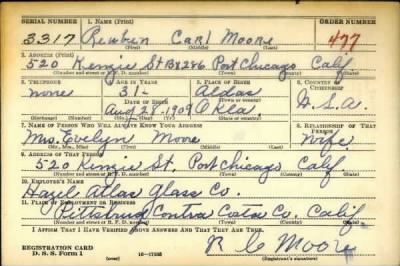 SERIAL NUMBER 1. NAME (Print) ORDER NUMBER
3317 Reubin Carl Moore 477
(First) (Middle) (Last)
2. ADDRESS (Print)
520 Kenzie St Bx286 Port Chicago Calif
(Number and street or R. F. D. number) (Town) (County) (State)
3. TELEPHONE 4. AGE IN YEARS 5. PLACE OF BIRTH 6. COUNTRY OF CITIZENSHIP
none 31- Aldas U.S.A.
DATE OF BIRTH (Town or county)
Aug 28-1909 Okla.
(Exchange) (Number) (Mo.) (Day) (Yr.) (State or country)
7. NAME OF PERSON WHO WILL ALWAYS KNOW YOUR ADDRESS 8. RELATIONSHIP OF THAT PERSON
Mrs. Evelyn Moore Wife
(Mr., Mrs., Miss) (First) (Middle) (Last)
9. ADDRESS OF THAT PERSON
520 Kenzie St. Port Chicago Calif
(Number and street or R. F. D. number) (Town) (County) (State)
10. EMPLOYER'S NAME
Hazel Atlas Glass Co.
11. PLACE OF EMPLOYMENT OR BUSINESS
Pittsburg Contra Costa Co. Calif
(Number and street or R. F. D. number) (Town) (County) (State)
I AFFIRM THAT I HAVE VERIFIED ABOVE ANSWERS AND THAT THEY ARE TRUE.
REGISTRATION CARD R C Moore
D. S. S. Form 1 (over) 16-17105 (Registrant's signature)